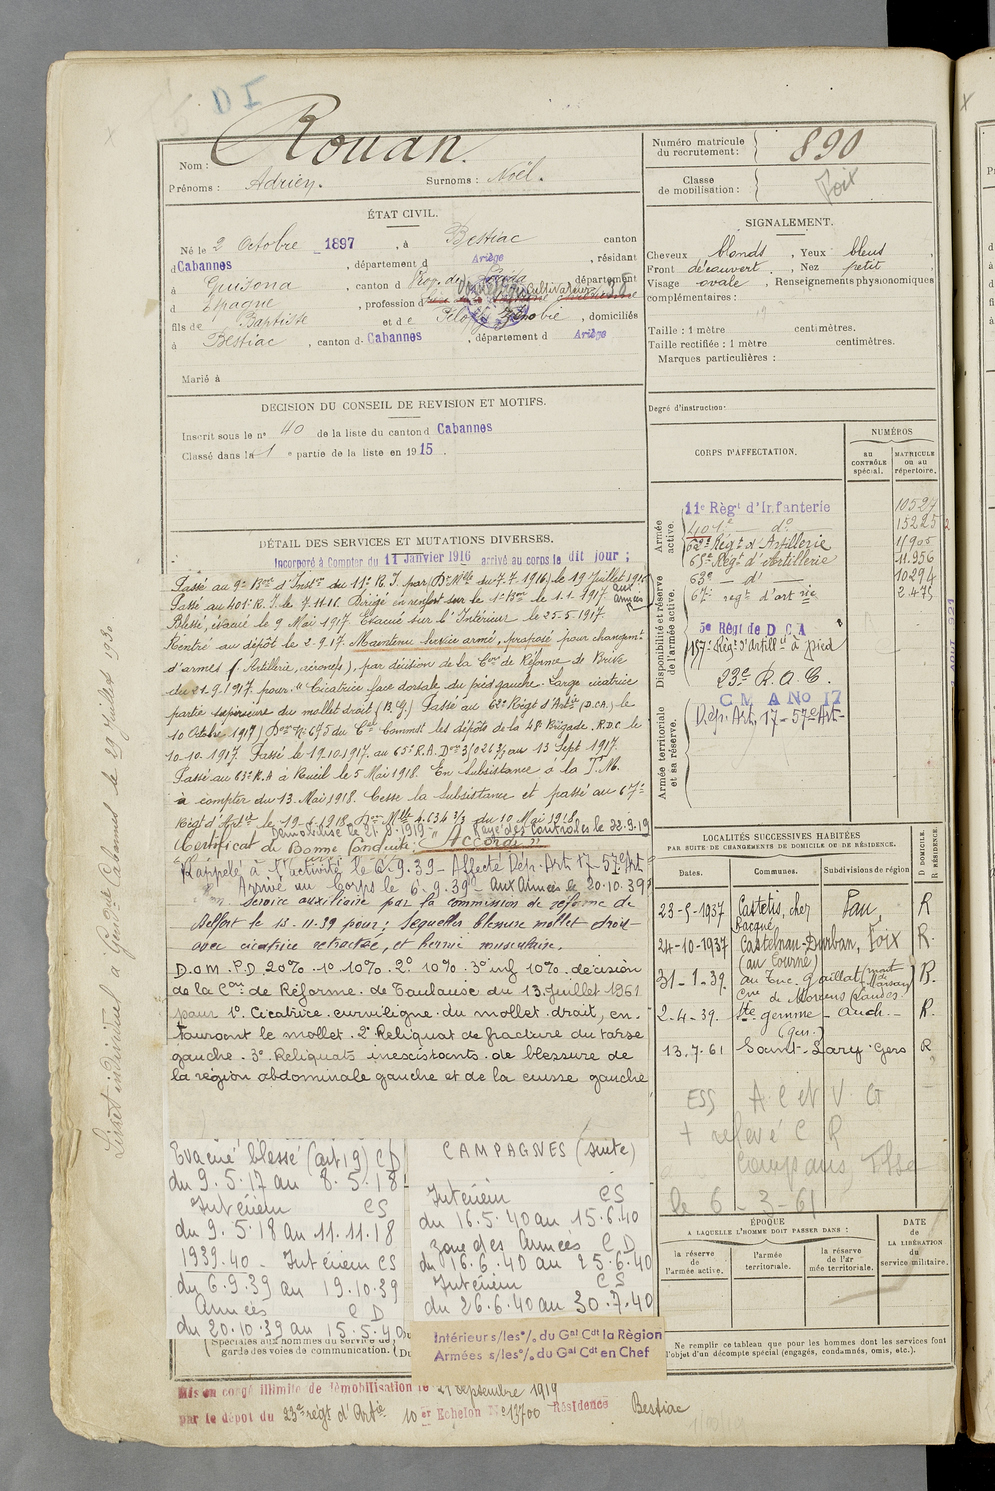 D I
Nom : Rouan.
Prénoms : Adrien. Surnoms : Noël.
Numéro matricule du recrutement : 890
Classe de mobilisation : Foix
ÉTAT CIVIL.
Né le 2 Octobre 1897, à Bestiac canton
d Cabannes, département d Ariège, résidant
à Guisona canton d département
d Espagne, profession d Cultivateur
fils de Baptiste et de domiciliés
à Bestiac, canton d. Cabannes, département d Ariège
Marié à
SIGNALEMENT.
Cheveux blonds, Yeux bleus
Front découvert, Nez petit
Visage ovale, Renseignements physionomiques
complémentaires :
Taille : 1 mètre centimètres.
Taille rectifiée : 1 mètre centimètres.
Marques particulières :
Degré d'instruction:
DECISION DU CONSEIL DE REVISION ET MOTIFS.
Inscrit sous le n° 40 de la liste du canton d Cabannes
Classé dans la 1 e partie de la liste en 19 15.
CORPS D'AFFECTATION.
NUMÉROS
au CONTRÔLE spécial.
MATRICULE ou au répertoire.
Armée active.
11e Régt d'Infanterie 10527
401e do 15225
62e Régt d'Artillerie 11905
65e Régt d'Artillerie 11956
63e — d° — 10294
67e regt d'art rie 2475
Disponibilité et réserve de l'armée active.
5e Régt de D C A
157e Régt d'Artillie à pied
23e R. A. C.
C M A No 17
Dép. Art. 17 - 57e Art -
Armée territoriale et sa réserve.
DÉTAIL DES SERVICES ET MUTATIONS DIVERSES.
Incorporé à Compter du 11 Janvier 1916 arrivé au corps le dit jour ;
Passé au 9e Bon d'Inston du 11e R. I. par Don Mlle du 7.7.1916) le 19 Juillet 1916
Passé au 401e R. I. le 7.11.16. Dirigé en renfort sur le 1er Bon le 1.1.1917 aux armées
Blessé, évacué le 9 Mai 1917 Évacué sur l'Intérieur le 25-5-1917.
Rentré au dépôt le 2.9.17. Maintenu service armé, proposé pour changemt
d'armes (Artillerie, aéronefs), par décision de la Con de Réforme de Brive
du 21.9.1917 pour "Cicatrice face dorsale du pied gauche. Large cicatrice
partie supérieure du mollet droit (B.G) Passé au 62e Régt d'Artie (D.C.A) le
10 Octobre 1917) Don N° 695 du Cel Commt les dépôts de la 48e Brigade, R.D.C le
10.10.1917. Passé le 19.10.1917. au 65e R.A. Don 3/026 3/3 au 13 Sept 1917.
Passé au 63e R.A à Rueil le 5 Mai 1918. En Subsistance à la T.M.
à compter du 13. Mai 1918. Cesse la Subsistance et passé au 67e
Régt d'Artie le 19.4.1918. Don Mlle 4.634 3/3 du 10 Mai 1918
Démobilisé le 21.9.1919 - Rayé des Contrôles le 23.9.19
Certificat de Bonne Conduite : "Accordé"
Rappelé à l'activité le 6-9-39 - Affecté Dép. Art 17 - 57e Art
Arrivé au Corps le 6-9-39. Aux Armées le 20.10.39
service auxiliaire par la commission de réforme de
Belfort le 13-11-39 pour : Sequelles blessure mollet droit
avec cicatrice rétractée, et hernie musculaire.
D.O.M. P.D. 20% 1° 10% 2° 10% 3° inf 10% décision
de la Con de Réforme de Toulouse du 13 Juillet 1961
pour 1° Cicatrice curviligne du mollet droit, en-
tourant le mollet. 2° Reliquat de fracture du tarse
gauche. 3° Reliquats inexistants de blessure de
la région abdominale gauche et de la cuisse gauche
LOCALITÉS SUCCESSIVES HABITÉES
PAR SUITE DE CHANGEMENTS DE DOMICILE OU DE RÉSIDENCE.
Dates. Communes. Subdivisions de région D DOMICILE. R RÉSIDENCE.
23-5-1937 Castetis, chez Bacqué Pau, R
24-10-1937 Castelnau-Durban, (au Tourné) Foix R.
31-1-39. au Tuc. Gaillat (mont de Marsan) R.
Cne de Momuy (Landes)
2-4-39. Ste gemme - Auch. - R.
(gers)
13.7.61 Saint-Lary Gers R
ESS A C et V. G
+ relevé C R
le 6-3-61
Livret individuel à Gendie Cabannes le 29 Juillet 1930
Evacué blessé (art 19) CD
du 9.5.17 au 8.5.18
Intérieur CS
du 9.5.18 au 11.11.18
1939.40 - Intérieur CS
du 6.9.39 au 19.10.39
Armées CD
du 20.10.39 au 15.5.40
CAMPAGNES (suite)
Intérieur CS
du 16.5.40 au 15.6.40
zone des Armées CD
du 16.6.40 au 25.6.40
Intérieur CS
du 26.6.40 au 30.7.40
ÉPOQUE
A LAQUELLE L'HOMME DOIT PASSER DANS :
la réserve de l'armée active.
l'armée territoriale.
la réserve de l'armée territoriale.
DATE de LA LIBÉRATION du service militaire.
Spéciales aux hommes du service de garde des voies de communication.
Intérieur s/les°/. du Gal Cdt la Région
Armées s/les°/. du Gal Cdt en Chef
Ne remplir ce tableau que pour les hommes dont les services font l'objet d'un décompte spécial (engagés, condamnés, omis, etc.).
Mis en congé illimité de démobilisation le 21 septembre 1919
par le dépôt du 23e régt d'Artie 10 er Echelon N° 13700 Résidence Bestiac